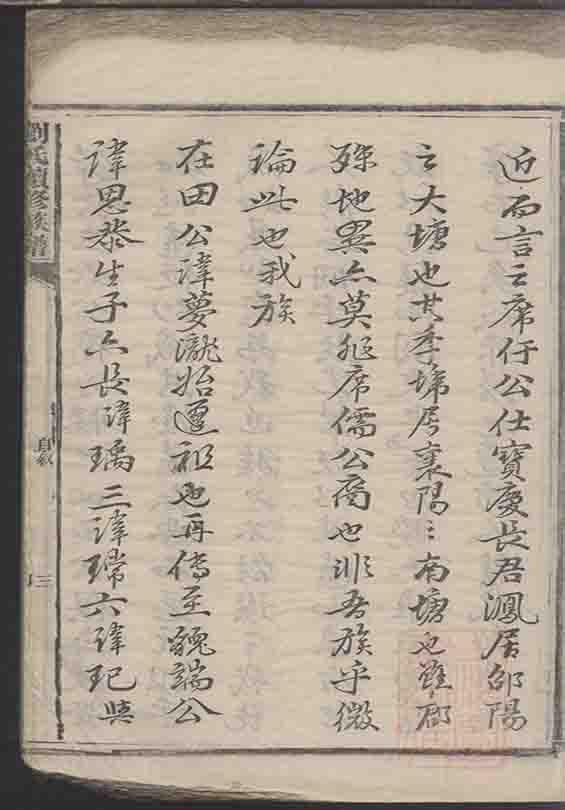 近而言之席仔公仕寶慶長君鳳居邵陽
之大塘也其季埽居襄陽之南塘也雖郡
殊地異亦莫非席儒公裔也非吾族乎微
論此也我族
在田公諱夢瀧始遷祖也再傳至醜端公
諱思黎生子六長諱瑀三諱瑺六諱玘與
劉氏續修族譜
自敘
三